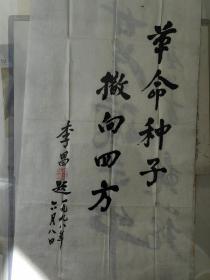 革命种子
撒向四方
李昌题
一九九八年
六月八日